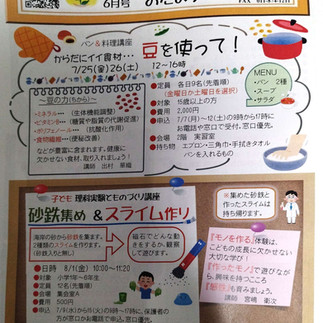 6月号
パン&料理講座
豆を使って！
からだにイイ食材…
7/25(金)26(土) 12～16時
～豆の力(ちから)～
ミネラル… (生体機能調整)
ビタミン… (糖質や脂質の代謝促進)
ポリフェノール… (抗酸化作用)
食物繊維… (便秘改善)
などが豊富に含まれます。健康に
欠かせない食材、取り入れましょう
講師
MENU
・パン 2種
・スープ
・サラダ
定員 各日9名(先着順)
(金曜日か土曜日を選択)
対象 15歳以上の方
費用 2,000円
申込 7/1(月)～12(土)の8時から17時に
お電話で窓口で受付、窓口優先。
会場 2階 実習室
持ち物 エプロン・三角巾・手拭きタオル
パンを入れるもの
子ども 理科実験とものづくり講座
砂鉄集め &スライム作り
海岸の砂から砂鉄を集ます。
2種類のスライムを作ります。
(砂鉄入りと無し)
磁石でどんな動
きをするか、観察
して遊びます。
日時 8/1(金) 10:00～11:20
対象 小学1年～6年生
定員 12名(先着順)
会場 集会室A
費用 500円
申込
の方が窓口かお電話で申込。窓口優先。
※集めた砂鉄と
作ったスライムは
持ち帰ります。
『モノを作る』体験は、
こどもの成長に欠かせない
大切な学び！
『作ったモノ』で遊びながら、
興味を持つこころ
も育みましょう。
講師 宮嶋 衛次